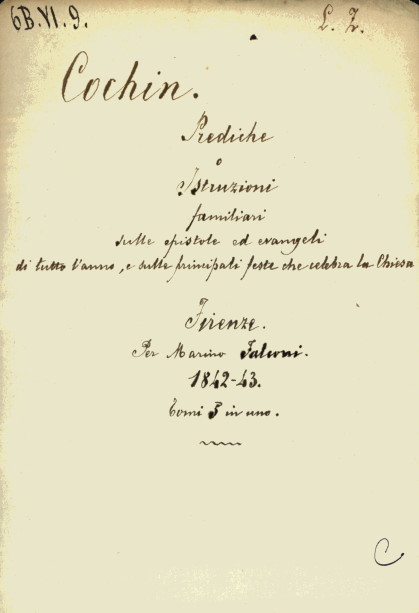 6B.VI.9.
L. Z.
Cochin.
Prediche
o
Istruzioni
familiari
sulle epistole ed evangeli
di tutto l'anno, e sulle principali feste che celebra la Chiesa
Firenze.
Per Marino
1842-43.
Tomi 5 in uno.
C